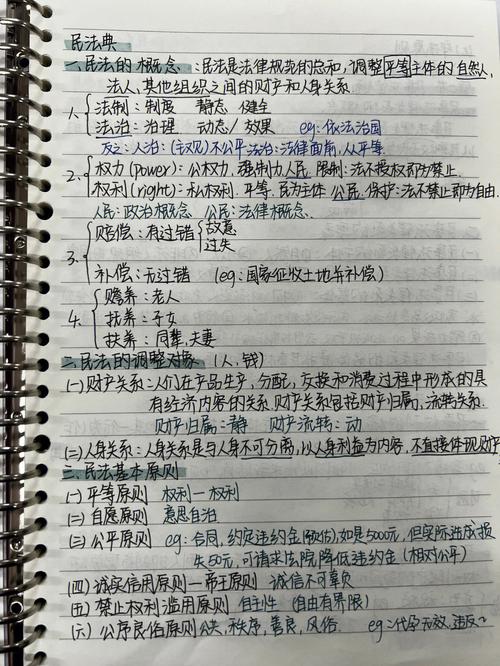 民法典
一.民法的概念:民法是法律规范的总和,调整平等主体的自然人,
法人,其他组织之间的财产和人身关系
1. 法制:制度 静态 健全
法治:治理 动态/效果 eg:依法治国
反之:人治:(主观)不公平 法治:法律面前,人人平等
2. 权力(power):公权力,强制力 人民 限制:法不授权即为禁止
权利(right):私权利.平等.民为主体 公民 保护:法不禁止即为自由
人民:政治概念 公民:法律概念.
3. 赔偿:有过错 故意
过失
补偿:无过错 (eg:国家征收土地并补偿)
4. 赡养:老人
抚养:子女
扶养:同辈,夫妻
二.民法的调整对象 (人,钱)
(一)财产关系:人们在产品生产,分配,交换和消费过程中形成的具
有经济内容的关系.财产关系包括财产归属,流转关系.
财产归属:静 财产流转:动
(二)人身关系:人身关系是与人身不可分离,以人身利益为内容,不直接体现财产
三.民法基本原则
(一)平等原则 权利一权利
(二)自愿原则 意思自治
(三)公平原则 eg:合同,约定违约金(预估),如是5000元,但实际造成损
失50元,可请求法院降低违约金(相对公平)
(四)诚实信用原则一帝王原则 诚信不可辜负
(五)禁止权利滥用原则 自主性 (自由有界限)
(六)公序良俗原则 公共,秩序,善良,风俗. eg:代孕无效,违反